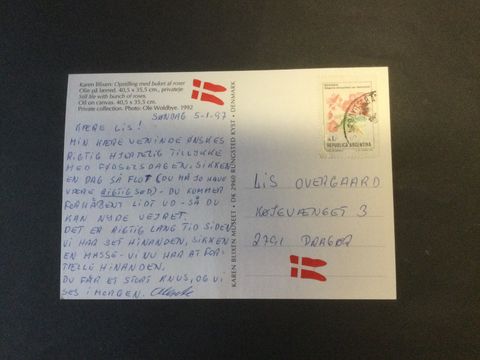 Karen Blixen: Opstilling med buket af roser
Olie på lærred. 40,5 x 35,5 cm., privateje
Still life with bunch of roses.
Oil on canvas. 40,5 x 35,5 cm.
Private collection. Photo: Ole Woldbye. 1992
SØNDAG 5-1-97
KÆRE LIS!
MIN KÆRE VENINDE ØNSKES
RIGTIG HJERTELIG TILLYKKE
MED FØDSELSDAGEN. SIKKEN
EN DAG SÅ FLOT (DU MÅ JO HAVE
VÆRE RIGTIG SØD) - DU KOMMER
FORHÅBENT LIDT UD - SÅ DU
KAN NYDE VEJRET.
DET ER RIGTIG LANG TID SIDEN
VI HAR SET HINANDEN, SIKKEN
EN MASSE - VI NU HAR AT FOR-
TÆLLE HINANDEN.
DU FÅR ET STORT KNUS, OG VI
SES I MORGEN.
KAREN BLIXEN MUSEET • DK 2960 RUNGSTED KYST • DENMARK
REPUBLICA ARGENTINA
LIS OVERGAARD
KØJEVÆNGET 3
2791 DRAGØR